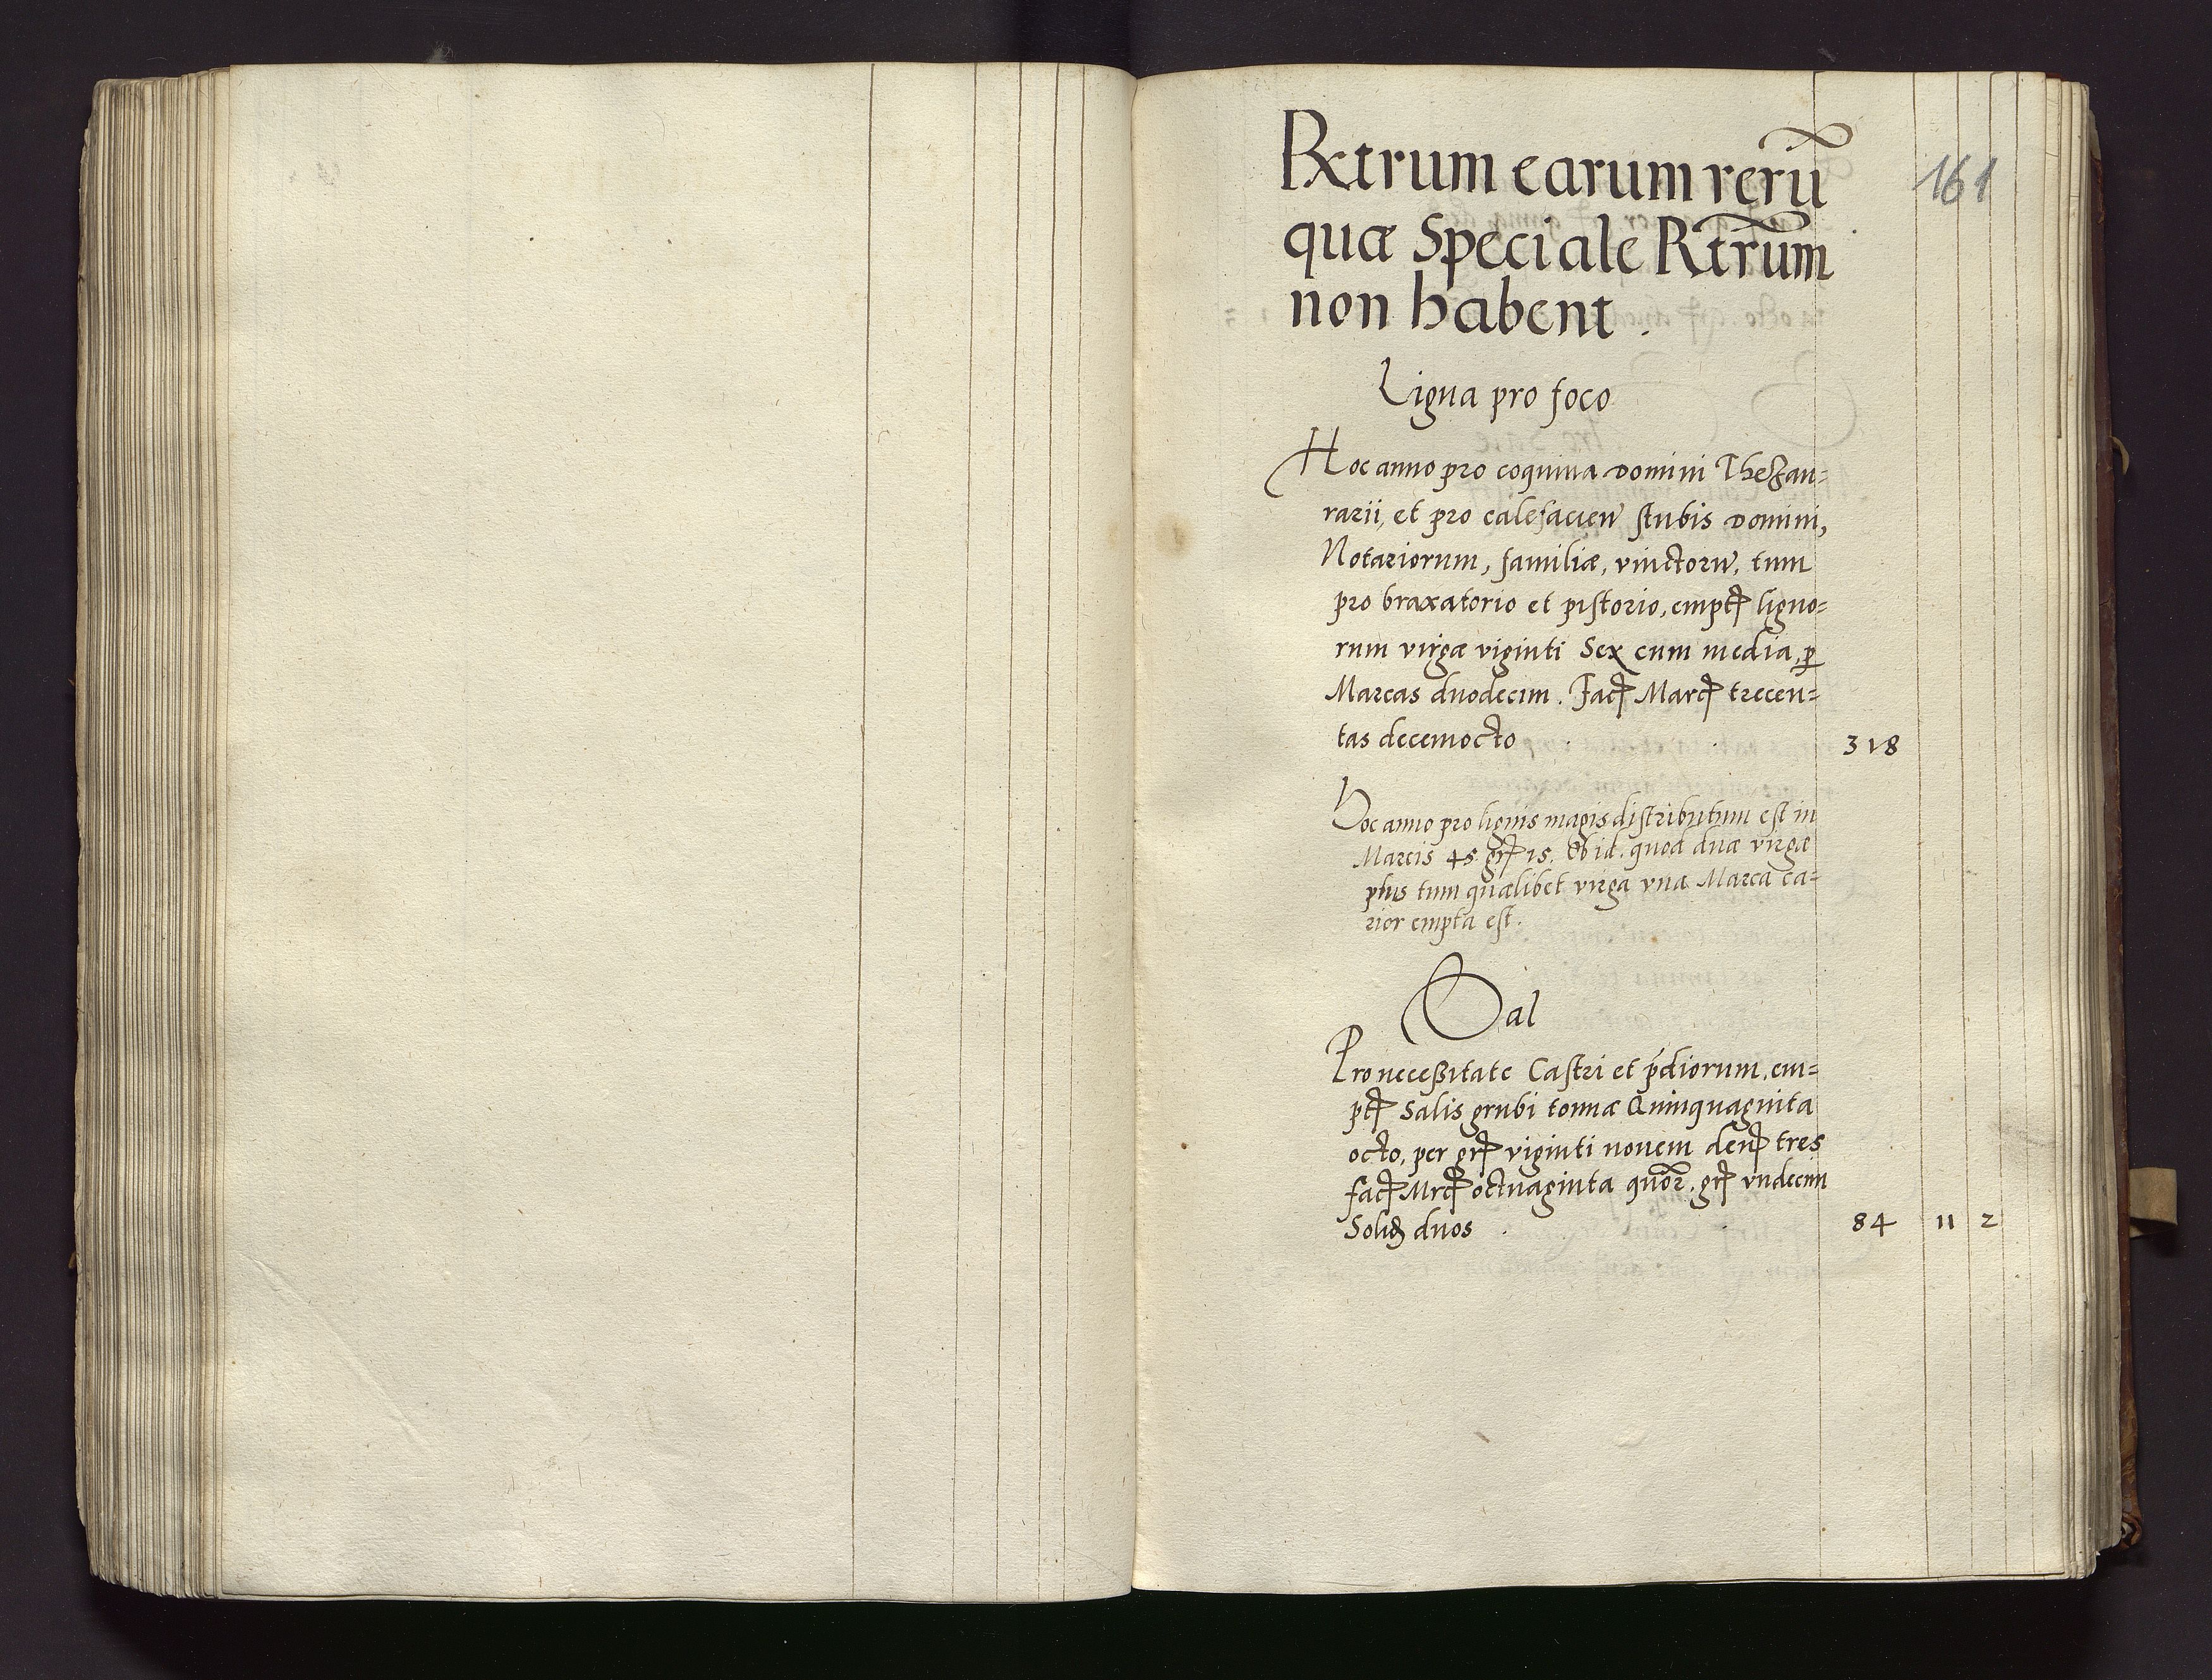 Rxtrum earum rerũ
161
quæ Speciale Rtrum
non habent .
Ligna pro foco
Hoc anno pro coquina Domini Thezau=
rarii, et pro calefacien stubis Domini,
Notariorum, familiæ, vinctorum, tum
pro braxatorio et pistorio, empt ligno=
rum virgæ viginti Sex cum media, per
Marcas duodecim . Fac Marc trecen=
tas decemocto 318
Hoc anno pro lignis magis distributum est in
Marcis 45 gr 15. Ob id. quod duæ virgæ
plus tum quælibet virga vna Marca ca=
rior empta est.
Sal
Pro neceßitate Castri et prediorum, em=
pt Salis grubi tonnæ Quinquaginta
octo, per gr viginti novem den tres
fac Mrc octuaginta quor. gr vndecim
Solid duos . 84 11 2